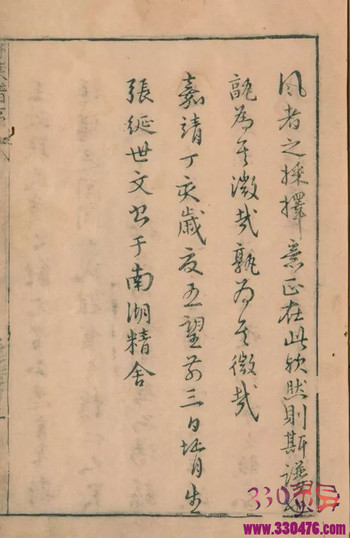 風者之採擇意正在此歟然則斯譜
孰為其微哉孰為其微哉
嘉靖丁亥歲夏五望前三日堉肖生
張綖世文书于南湖精舍
330
www.330476.com